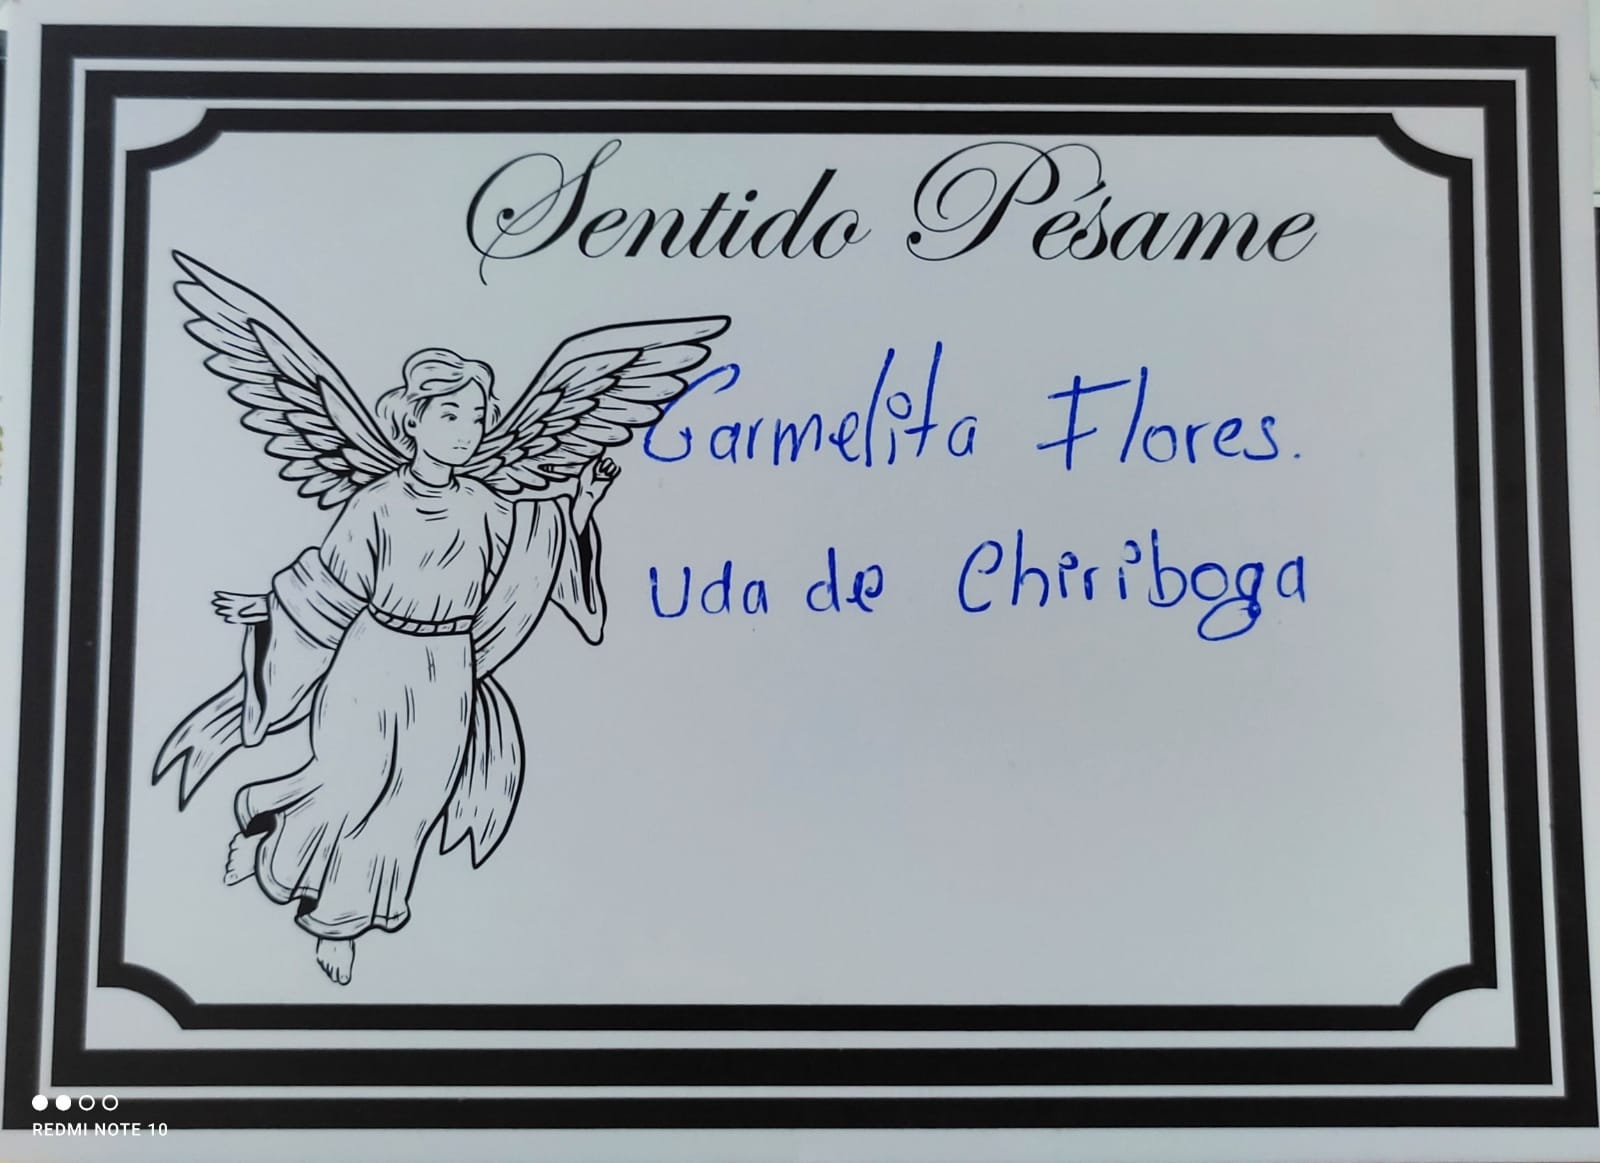 Sentido Pésame
Carmelita Flores.
Vda de Chiriboga
REDMI NOTE 10